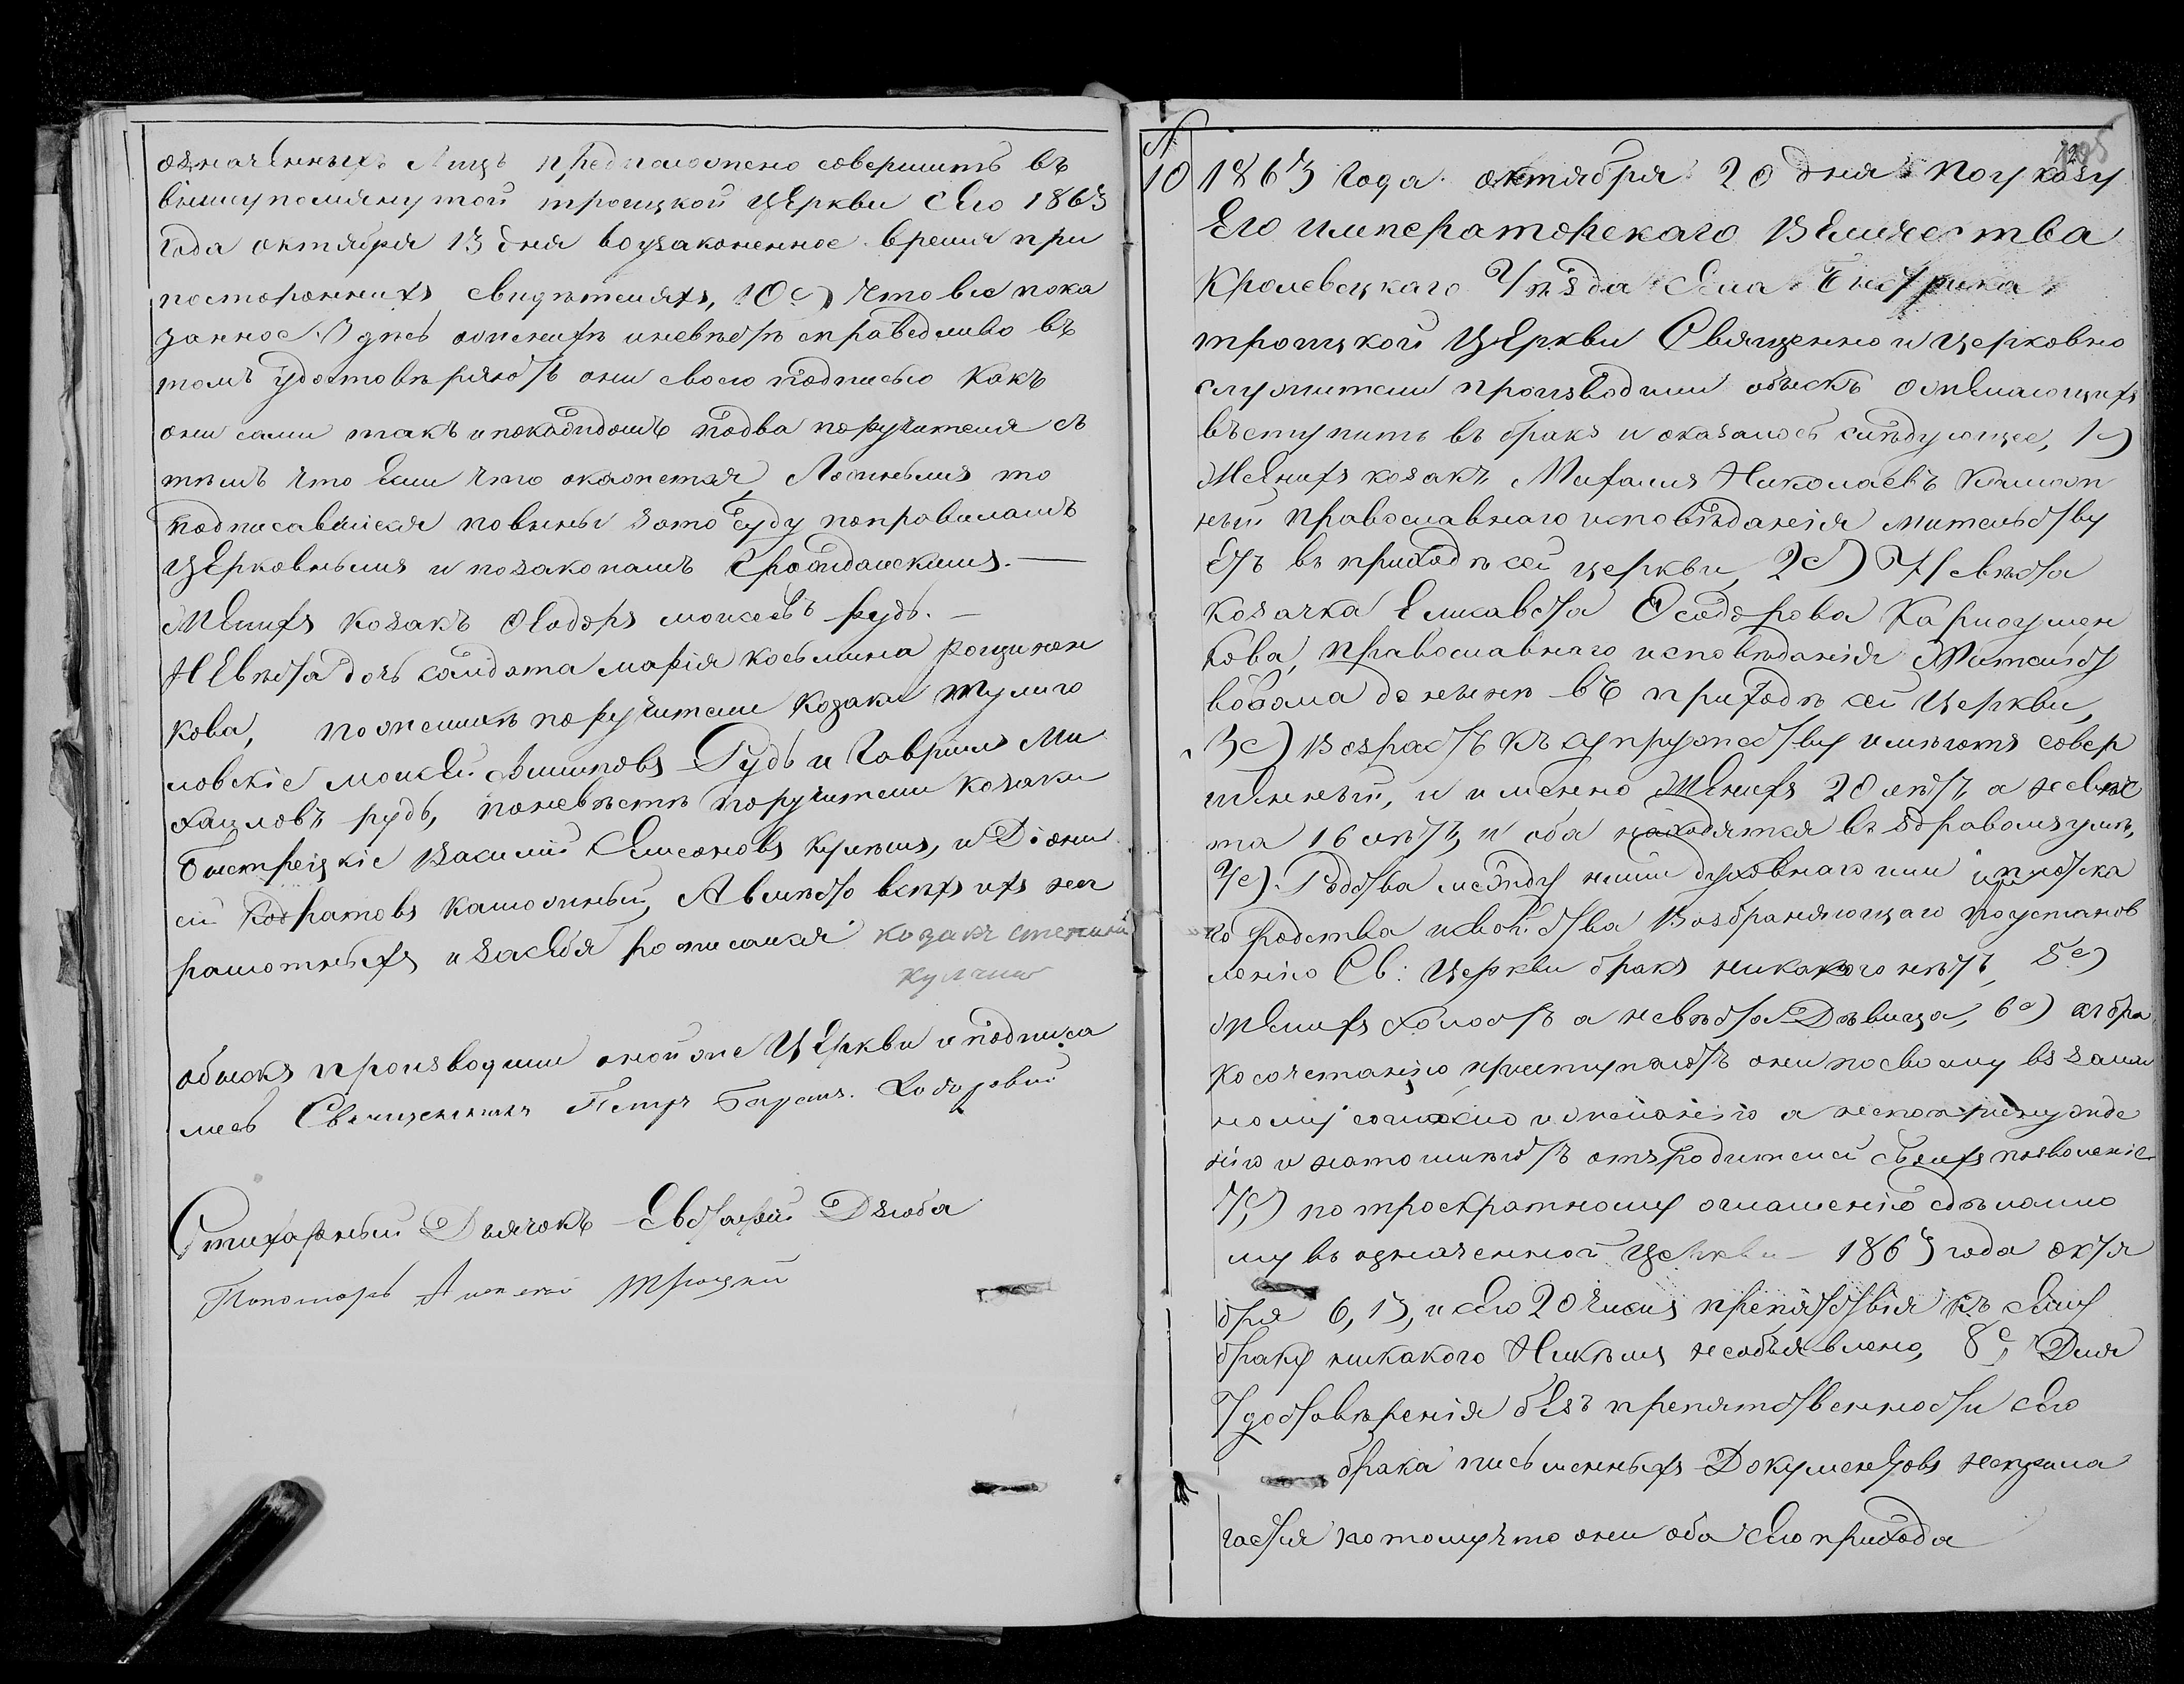 означенныхъ Лицъ предположено совершить въ
вышеупомянутой троицкой Церкви сего 1863
года октября 13 дня воузаконенное время при
постороннихъ свидѣтеляхъ, 10е) Что все пока
занное Здѣсь оженихѣ иневѣстѣ справедливо въ
томъ удостовѣряютъ они своею подписью какъ
они сами такъ и покаждомъ подва поручителя съ
тѣмъ что Если что окажется Ложнымъ то
подписавшіеся повинны зато суду поправиламъ
Церковнымъ и позаконамъ Гражданскимъ. —
Женихъ козакъ Ѳеодоръ моисеевъ рудь. —
Невѣста дочь солдата марія косьмина
кова, поженихѣ поручители козаки тулиго
ловскіе моисей Рудь и Гавріилъ Ми
хаиловъ рудь, поневѣстѣ поручители козаки
Быстрецкіе Василій Симеоновъ и Діони
сій Кодратовъ Калюжный, Авмѣсто всѣхъ ихъ негра
рамотныхъ изасебя росписался козакъ
обыскъ производили оной же Церкви и подписа
лись Священникъ Петръ
Стихарный Дьячокъ Евстафій Дзюба
Пономарь Алексѣй Троцкій
№
10 1863 года октября 20 дня поуказу
Его императорскаго Величества
Кролевецкаго Уѣзда Села Быстрика
троицкой Церкви Священно и церковно
служители производили обыскъ ожелающихъ
въступить въ бракъ и оказалось слѣдующее, 1е)
Женихъ козакъ Михаилъ Николаевъ
ный православнаго исповѣданія жительству
етъ въ приходѣ сей церкви, 2е) Невѣста
козачка Елисавета Ѳеодорова
кова, православнаго исповѣданія Жительст
вовала до нынѣ въ приходѣ сей Церкви,
3е) Возрастъ къ супружеству имѣютъ совер
шенный, и именно Женихъ 20 лѣтъ а невѣс
та 16 лѣтъ, и оба находятся въ здравомъ умѣ,
4е). Родства между ними духовнаго или плотска
го родства исвойства Возбраняющаго поустанов
ленію Св: Церкви бракъ никакого нѣтъ, 5е)
Женихъ холостъ а невѣста Дѣвица, 6е) къ бра
ко сочетанію приступаютъ они посвоему взаим
ному согласію и желанію а непопринужде
нію и натоимѣютъ отъ родителей своихъ позволеніе
7е) по троекратному оглашенію сдѣланно
му въ означенной Церкви 1863 года октя
бря 6, 13, и сего 20 чиселъ препятствія къ сему
браку никакого Никѣмъ необъявлено, 8е, Для
Удостовѣренія безъ препятственности сего
брака письменныхъ Документовъ неприла
гается потомучто они оба сего прихода